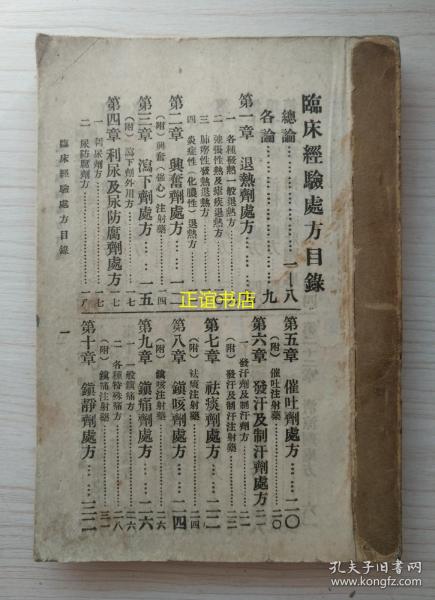 臨床經驗處方目錄
總論……一—八
各論……九
第一章 退熱劑處方……九
一 各種發熱一般退熱方……九
二 弛張性熱及瘧疾退熱方……一〇
三 肺癆性發熱退熱方
四 炎症性（化膿性）退熱方
第二章 興奮劑處方
（附）興奮（催心）注射藥……一四
第三章 瀉下劑處方……一五
（附）瀉下劑外用方……一七
第四章 利尿及尿防腐劑處方……一七
一 利尿劑方……一七
二 尿防腐劑方……一八
第五章 催吐劑處方……二〇
（附）催吐注射藥……二〇
第六章 發汗及制汗劑處方……二一
一 發汗劑及制汗劑方……二一
（附）發汗及制汗注射藥……二二
第七章 祛痰劑處方……二二
（附）祛痰注射藥……二四
第八章 鎮咳劑處方……二四
（附）鎮咳注射藥……二六
第九章 鎮痛劑處方……二六
一 一般鎮痛方……二六
二 各種特殊痛方……二八
（附）鎮痛注射藥……三一
第十章 鎮靜劑處方……三二
臨床經驗處方目錄
一
正谊书店
孔夫子旧书网
www.kongfz.com